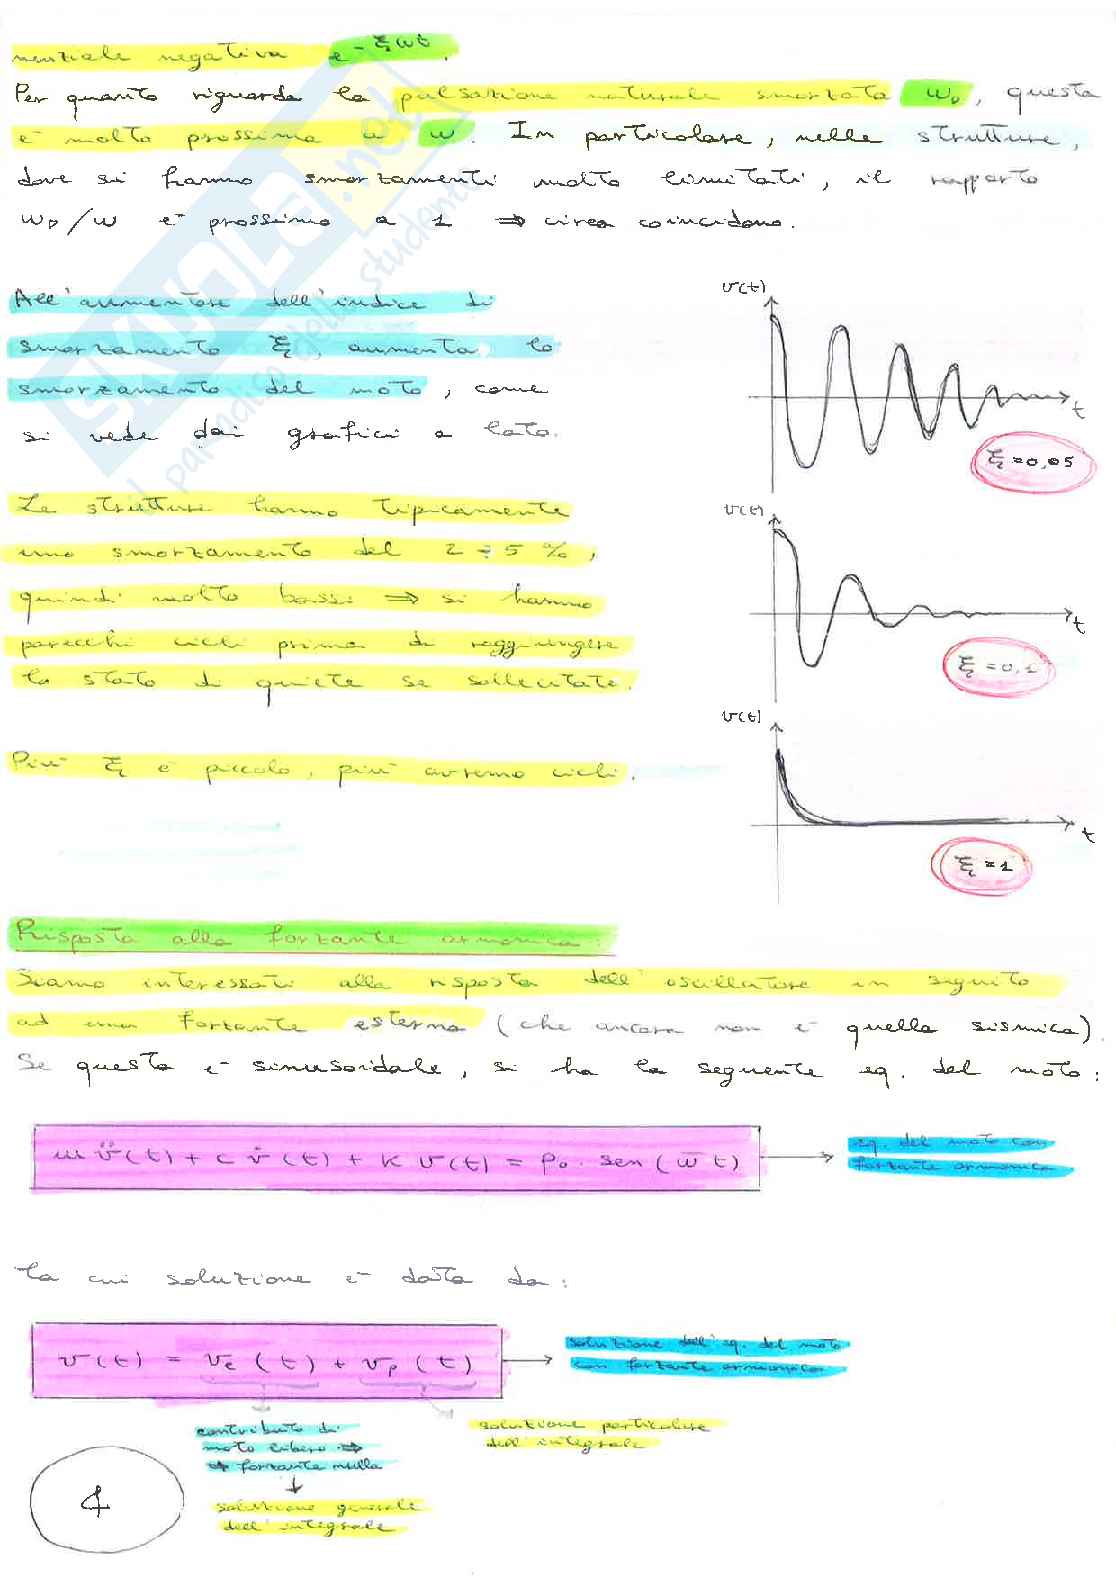 nenziale negativa e^-ξωt.
Per quanto riguarda la pulsazione naturale smorzata ωD, questa
è molto prossima a ω. In particolare, nelle strutture,
dove si hanno smorzamenti molto limitati, il rapporto
ωD/ω è prossimo a 1 ⇒ circa coincidono.
All'aumentare dell'indice di
smorzamento ξ, aumenta lo
smorzamento del moto, come
si vede dai grafici a lato.
v(t)
t
ξ=0,05
Le strutture hanno tipicamente
uno smorzamento del 2÷5%,
quindi molto bassi ⇒ si hanno
parecchi cicli prima di raggiungere
lo stato di quiete se sollecitate.
v(t)
t
ξ=0,1
Più ξ è piccolo, più avremo cicli.
v(t)
t
ξ=1
Risposta alla forzante armonica:
Siamo interessati alla risposta dell'oscillatore in seguito
ad una forzante esterna (che ancora non è quella sismica).
Se questa è sinusoidale, si ha la seguente eq. del moto:
m v̈(t) + c v̇(t) + k v(t) = p₀ · sen(ω̄t)
eq. del moto con
forzante armonica
la cui soluzione è data da:
v(t) = vc(t) + vp(t)
soluzione dell'eq. del moto
con forzante armonica
contributo di
moto libero ⇒
⇒ forzante nulla
soluzione generale
dell'integrale
soluzione particolare
dell'integrale
4
SKUOLA.net
il paradiso dello studente